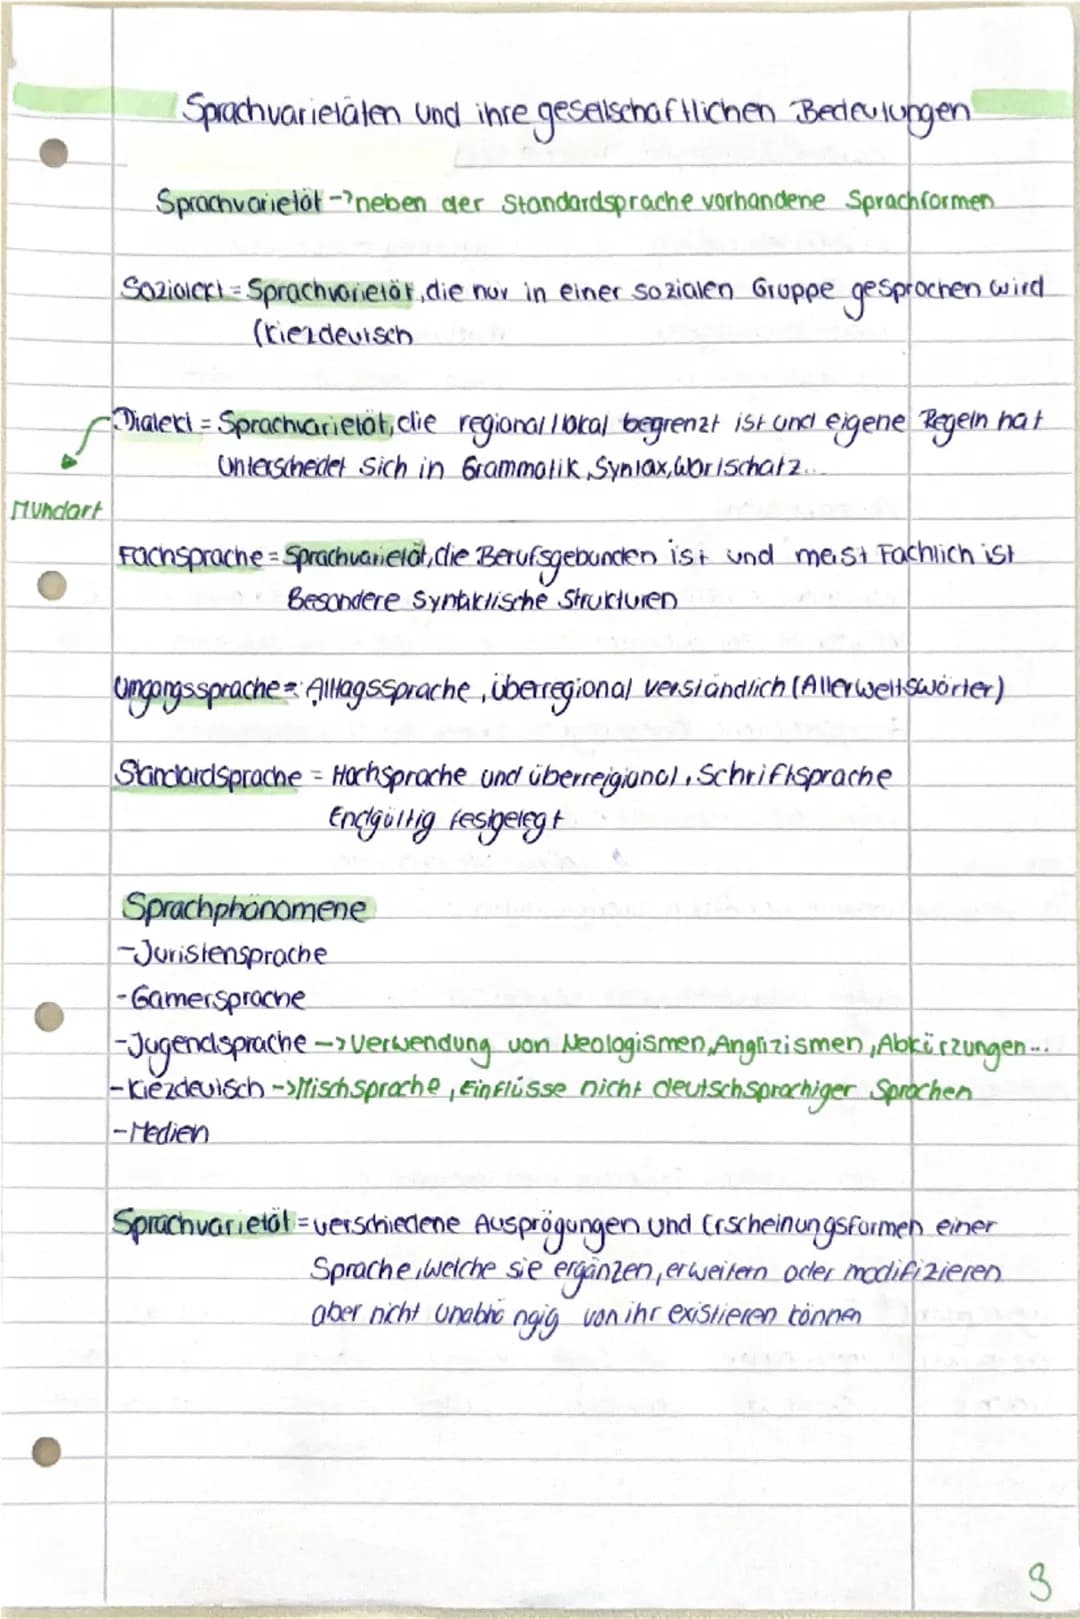 Sprachvarietäten und ihre geselschaftlichen Bedeutungen
Sprachvarietät -> neben der Standardsprache vorhandene Sprachformen
Soziolekt = Sprachvarietät, die nur in einer sozialen Gruppe gesprochen wird
(Kiezdeutsch
Dialekt = Sprachvarietät, die regional/lokal begrenzt ist und eigene Regeln hat
Unterscheidet sich in Grammatik, Syntax, Wortschatz...
Mundart
Fachsprache = Sprachvarietät, die Berufsgebunden ist und meist Fachlich ist
Besondere Syntaktische Strukturen
Umgangssprache = Alltagssprache, überregional verständlich (Allerweltswörter)
Standardsprache = Hochsprache und überreigional, Schriftsprache
Endgültig festgelegt
Sprachphänomene
- Juristensprache
- Gamersprache
- Jugendsprache -> Verwendung von Neologismen, Anglizismen, Abkürzungen...
- Kiezdeutsch -> Mischsprache, Einflüsse nicht deutschsprachiger Sprachen
- Medien
Sprachvarietät = verschiedene Ausprägungen und Erscheinungsformen einer
Sprache, welche sie ergänzen, erweitern oder modifizieren
aber nicht unabhängig von ihr existieren können
3